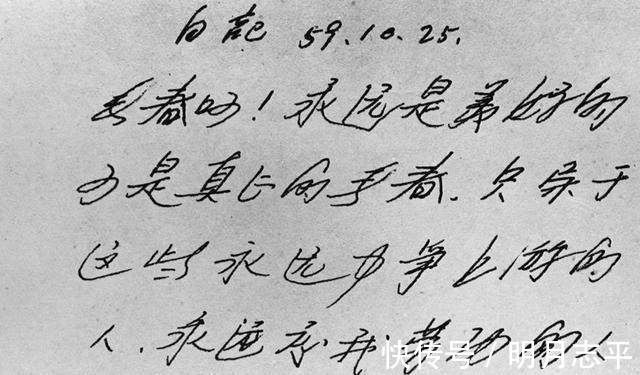 日記 59.10.25.
青春啊！永远是美好的
可是真正的青春，只属于
这些永远力争上游的
人，永远忘我劳动的人
快传号 / 明月志平